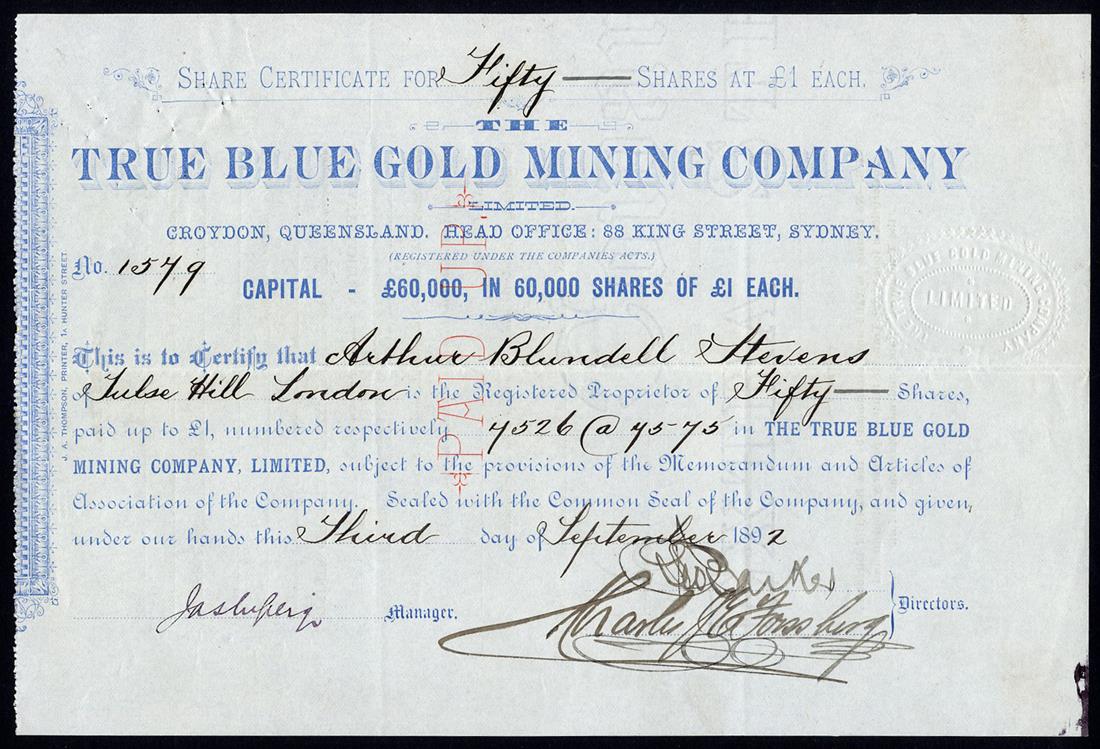 SHARE CERTIFICATE FOR Fifty SHARES AT £1 EACH.
THE
TRUE BLUE GOLD MINING COMPANY
LIMITED.
CROYDON, QUEENSLAND. HEAD OFFICE: 88 KING STREET, SYDNEY.
(REGISTERED UNDER THE COMPANIES ACTS.)
No. 1579
CAPITAL - £60,000, IN 60,000 SHARES OF £1 EACH.
This is to Certify that Arthur Blundell Stevens
of Tulse Hill London is the Registered Proprietor of Fifty Shares,
paid up to £1, numbered respectively 7526 @ 7575 in THE TRUE BLUE GOLD
MINING COMPANY, LIMITED, subject to the provisions of the Memorandum and Articles of
Association of the Company. Sealed with the Common Seal of the Company, and given,
under our hands this Third day of September 1892
Geo Barker
Manager. Charles Directors.
PAID UP
J. A. THOMPSON, PRINTER, 1A HUNTER STREET
THE TRUE BLUE GOLD MINING COMPANY
LIMITED